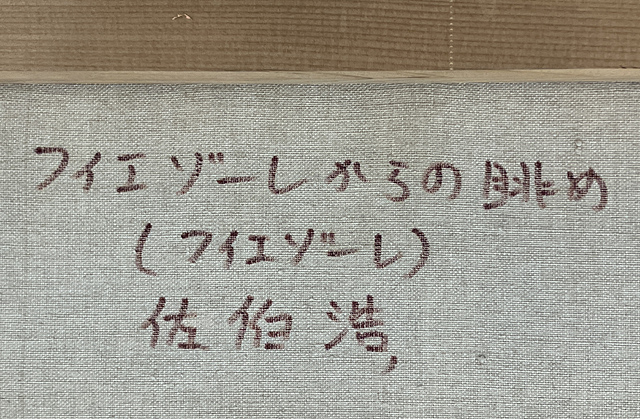 フィエゾーレからの眺め
(フィエゾーレ)
佐伯浩